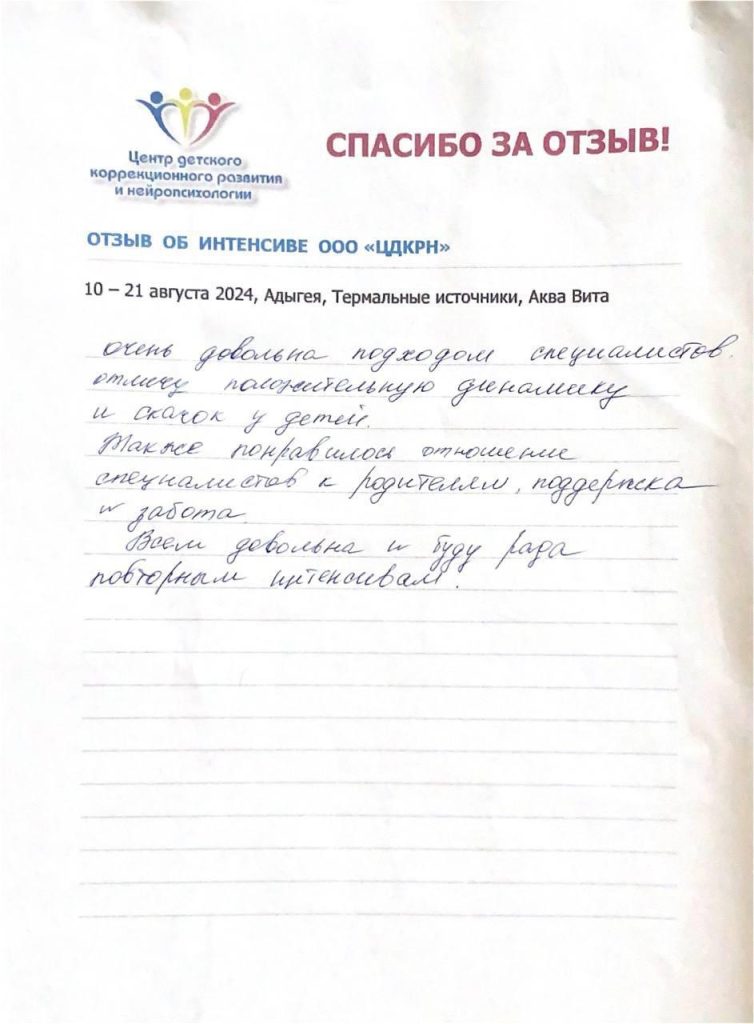 Центр детского
коррекционного развития
и нейропсихологии
СПАСИБО ЗА ОТЗЫВ!
ОТЗЫВ ОБ ИНТЕНСИВЕ ООО «ЦДКРН»
10 – 21 августа 2024, Адыгея, Термальные источники, Аква Вита
очень довольна подходом специалистов.
отмечу положительную динамику
и скачок у детей.
Также понравилось отношение
специалистов к родителям, поддержка
и забота.
Всем довольна и буду рада
повторным интенсивам.